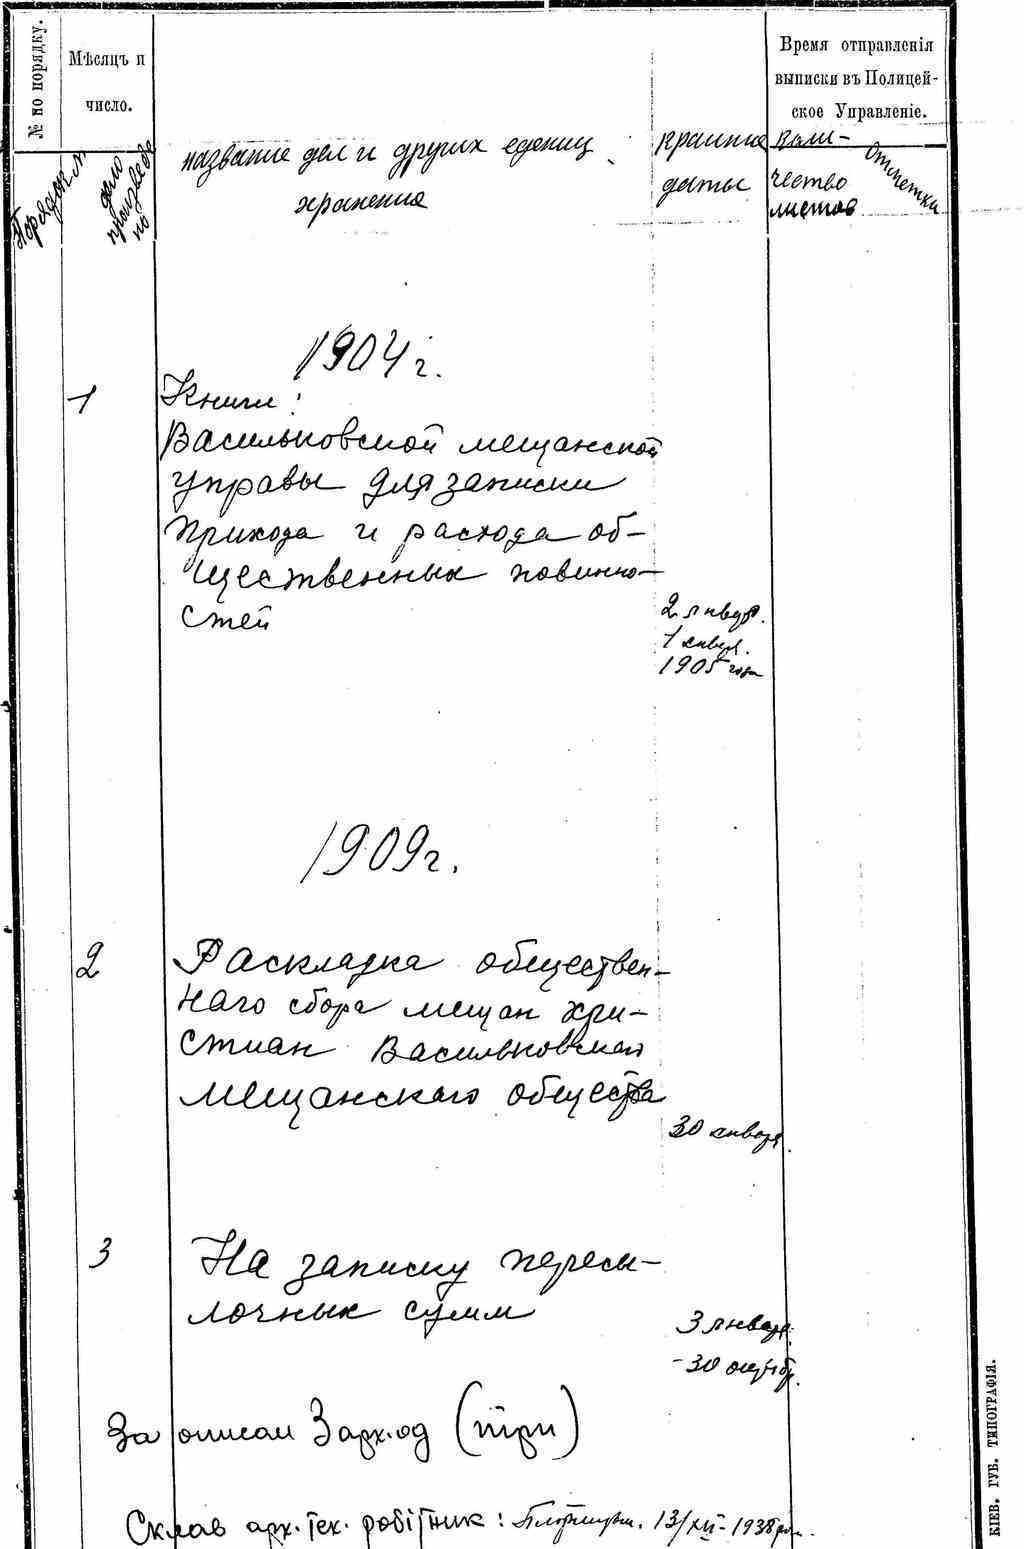 № по порядку.
Мѣсяцъ и
число.
Время отправленія
выписки въ Полицей-
ское Управленіе.
Порядок №
дело
произвед
но
название дел и других едениц
хранения
крайние
даты
Коли-
чество
листов
Отметки
1904 г.
1
Книги:
Васильковской мещанской
управы для записки
прихода и расхода об-
щественных повинно-
стей
2 январ.
1 январ.
1905 года
1909 г.
2
Раскладка обществен-
наго сбора мещан хри-
стиан Васильковскаго
мещанскаго общества
30 января
3
На записку пересы-
лочных сумм
3 января
-30 октябр.
За описом 3 арх.од (три)
Склав арх. тех. робітник: 13/XII-1938
КІЕВ. ГУБ. ТИПОГРАФІЯ.